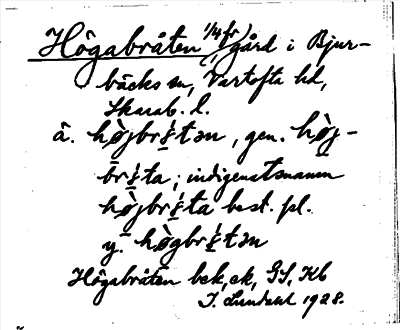 Högabråten (1/4 fr) gård i Bjur-
bäcks sn, Vartofta hd,
Skarab. l.
ä. hòjbrɛ́tən, gen. hòj-
brɛ́ta; indigenatsnamn
hòjbrɛ́ta best. pl.
y. hògbrɛ́tən
Högabråten bek, ek, GS, Kb
I. Lundahl 1928.